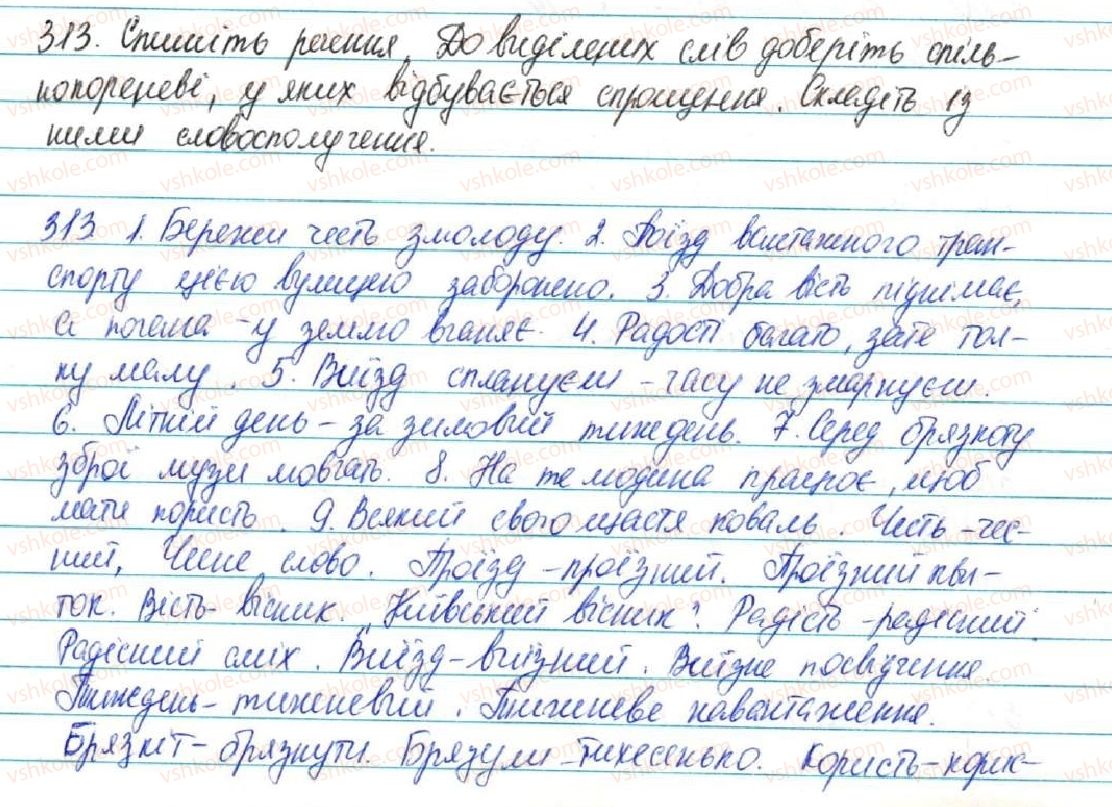 313. Спишіть речення. До виділених слів доберіть спіль-
нокореневі, у яких відбувається спрощення. Складіть із
ними словосполучення.
313. 1. Бережи честь змолоду. 2. Проїзд вантажного тран-
спорту цією вулицею заборонено. 3. Добра вість піднімає,
а погана - у землю вганяє. 4. Радості багато, зате тол-
ку мало. 5. Виїзд сплануєш - часу не змарнуєш.
6. Літній день - за зимовий тиждень. 7. Серед брязкоту
зброї музи мовчать. 8. На те людина працює, щоб
мати користь. 9. Всякий свого щастя коваль. Честь - чес-
ний, Чесне слово. Проїзд - проїзний. Проїзний кви-
ток. Вість - вісник. "Київський вісник". Радість - радісний.
Радісний сміх. Виїзд - виїзний. Виїзне посвідчення.
Тиждень - тижневий. Тижневе навантаження.
Брязкіт - брязнути. Брязнули тихесенько. Користь - корис-